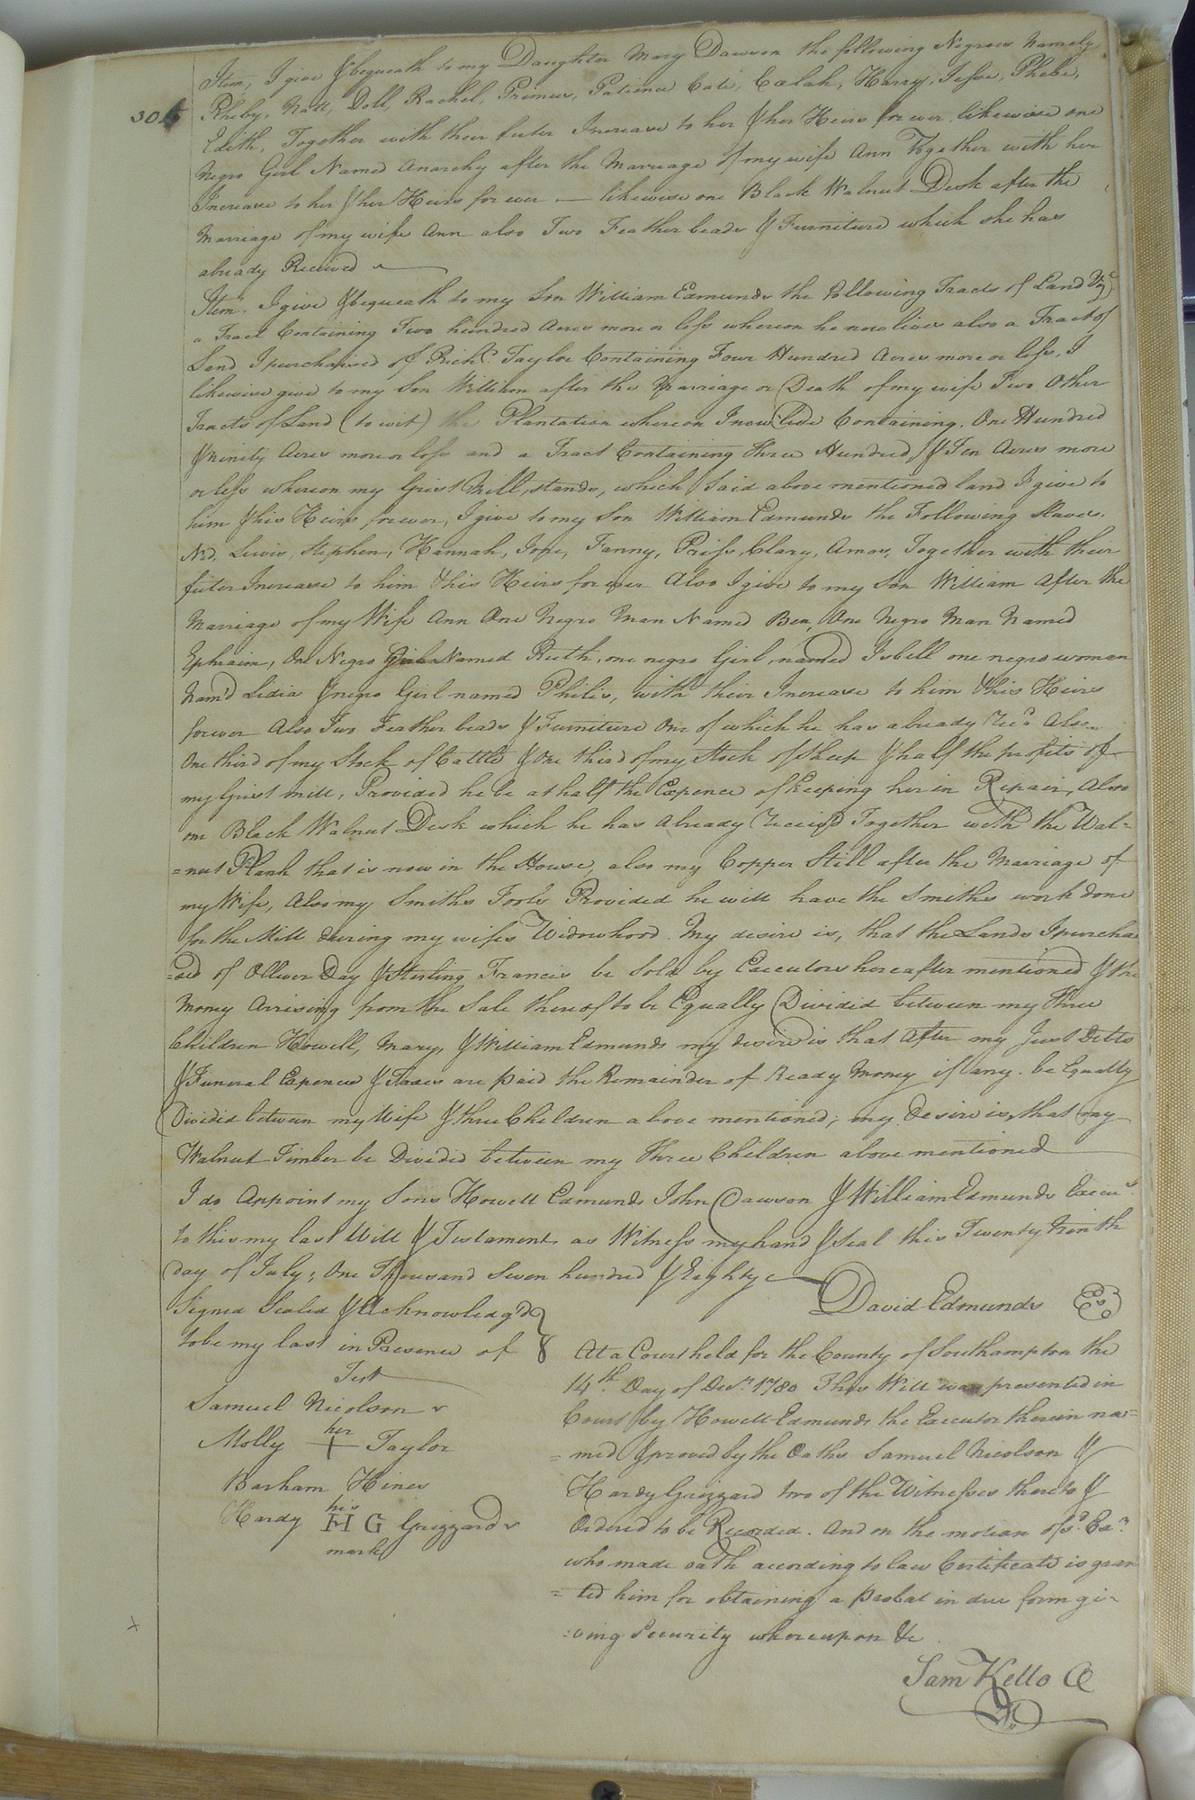 306
Item, I give & bequeath to my Daughter Mary Dawson the following Negroes Namely
Pheby, Natt, Doll, Rachel, Primus, Patience Cate, Calah, Harry, Jesse, Phebe,
Edith, Together with their futer Increase to her & her Heirs for ever, likewise one
Negro Girl Named Anarchy after the Marriage of my wife Ann Together with her
Increase to her & her Heirs for ever — likewise one Black Walnut Desk after the
Marriage of my wife Ann also Two Feather beads & Furniture which she has
already Recieved
Item, I give & bequeath to my Son William Edmunds the Following Tracts of Land Viz
a Tract Containing Two hundred Acres more or less whereon he now lives also a Tract of
Land I purchased of Richd. Taylor Containing Four Hundred Acres more or less, I
likewise give to my Son William after the Marriage or Death of my wife Two Other
Tracts of Land (to wit) the Plantation whereon I now live Containing One Hundred
& Ninity Acres more or less and a Tract Containing Three Hundred & Ten Acres more
or less whereon my Grist Mill stands, which said above mentioned land I give to
him & his Heirs for ever, I give to my Son William Edmunds the Following Slaves.
Ned, Lewis, Stephen, Hannah, Fanny, Priss, Clary, Amos, Together with their
futer Increase to him & his Heirs for ever Also I give to my Son William After the
Marriage of my Wife Ann One Negro Man Named Ben, One Negro Man Named
Ephraim, One Negro Girl Named Ruth, one negro Girl, named Isbell one negro woman
Nam'd Lidia & negro Girl named Philis, with their Increase to him & his Heirs
forever Also Two Feather beads & Furniture One of which he has already Recd. Also
One third of my Stock of Cattle & One third of my Stock of Sheep & half the profits of
my Grist mill, Provided he be at half the Expence of keeping her in Repair, Also
one Black Walnut Desk which he has Already Reciev'd Together with the Wal=
=nut Plank that is now in the House, also my Copper Still after the Marriage of
my Wife, Also my Smiths Tools Provided he will have the Smiths work done
for the Mill during my wifes Widowhood. My desire is, that the Lands I purcha
=sed of Olliver Day & Sterling Francis be Sold by Executors hereafter mentioned & the
Money Arrising from the Sale thereof to be Equally Divided between my Three
Children Howell, Mary, & William Edmunds my desire is that After my Just Debts
& Funeral Expences & Taxes are paid the Remainder of Ready Money if any be Equally
Divided between my Wife & three Children above mentioned; my Desire is, that my
Walnut Timber be Divided between my three Children above mentioned
I do Appoint my Sons Howell Edmunds John Dawson & William Edmunds Execurs.
to this my last Will & Testament as Witness my hand & Seal this Twenty Ninth
day of July, One Thousand Seven hundred & Eighty
David Edmunds
Signed Sealed & Acknowledg'd
to be my last in Presence of
Test
Samuel Nicolson
Molly her + Taylor
Barham Hines
Hardy his H G Grizzard
mark
At a Court held for the County of Southampton the
14th. Day of Decr. 1780 This Will was presented in
Court by Howell Edmunds the Executor therein na=
=med & proved by the Oaths Samuel Nicolson &
Hardy Grizzard two of the Witnesses thereto &
Ordered to be Recorded. And on the motion of sd. Exr.
who made oath according to law Certificate is gran
=ted him for obtaining a probat in due form gi=
=ving Security whereupon &c
Sam Kello
x